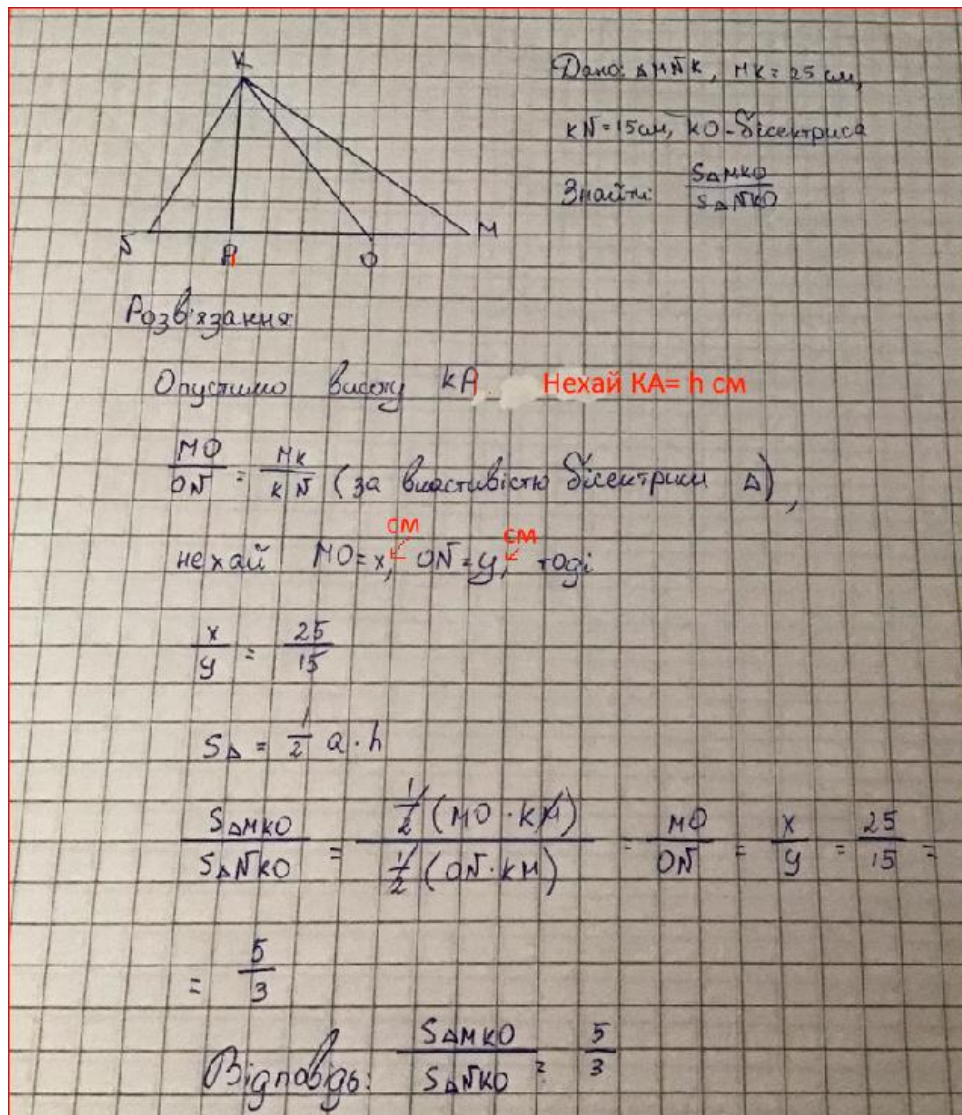 K
Дано: ΔMNK, MK = 25 см,
KN = 15см, KO - бісектриса
Знайти: SΔMKO / SΔNKO
N A O M
Розв'язання
Опустимо висоту KA. Нехай KA= h см
MO/ON = MK/KN (за властивістю бісектрики Δ),
нехай MO = x, см ON = y, см тоді
x/y = 25/15
SΔ = 1/2 a · h
SΔMKO / SΔNKO = 1/2 (MO · KM) / 1/2 (ON · KM) = MO/ON = x/y = 25/15 =
= 5/3
Відповідь: SΔMKO / SΔNKO = 5/3